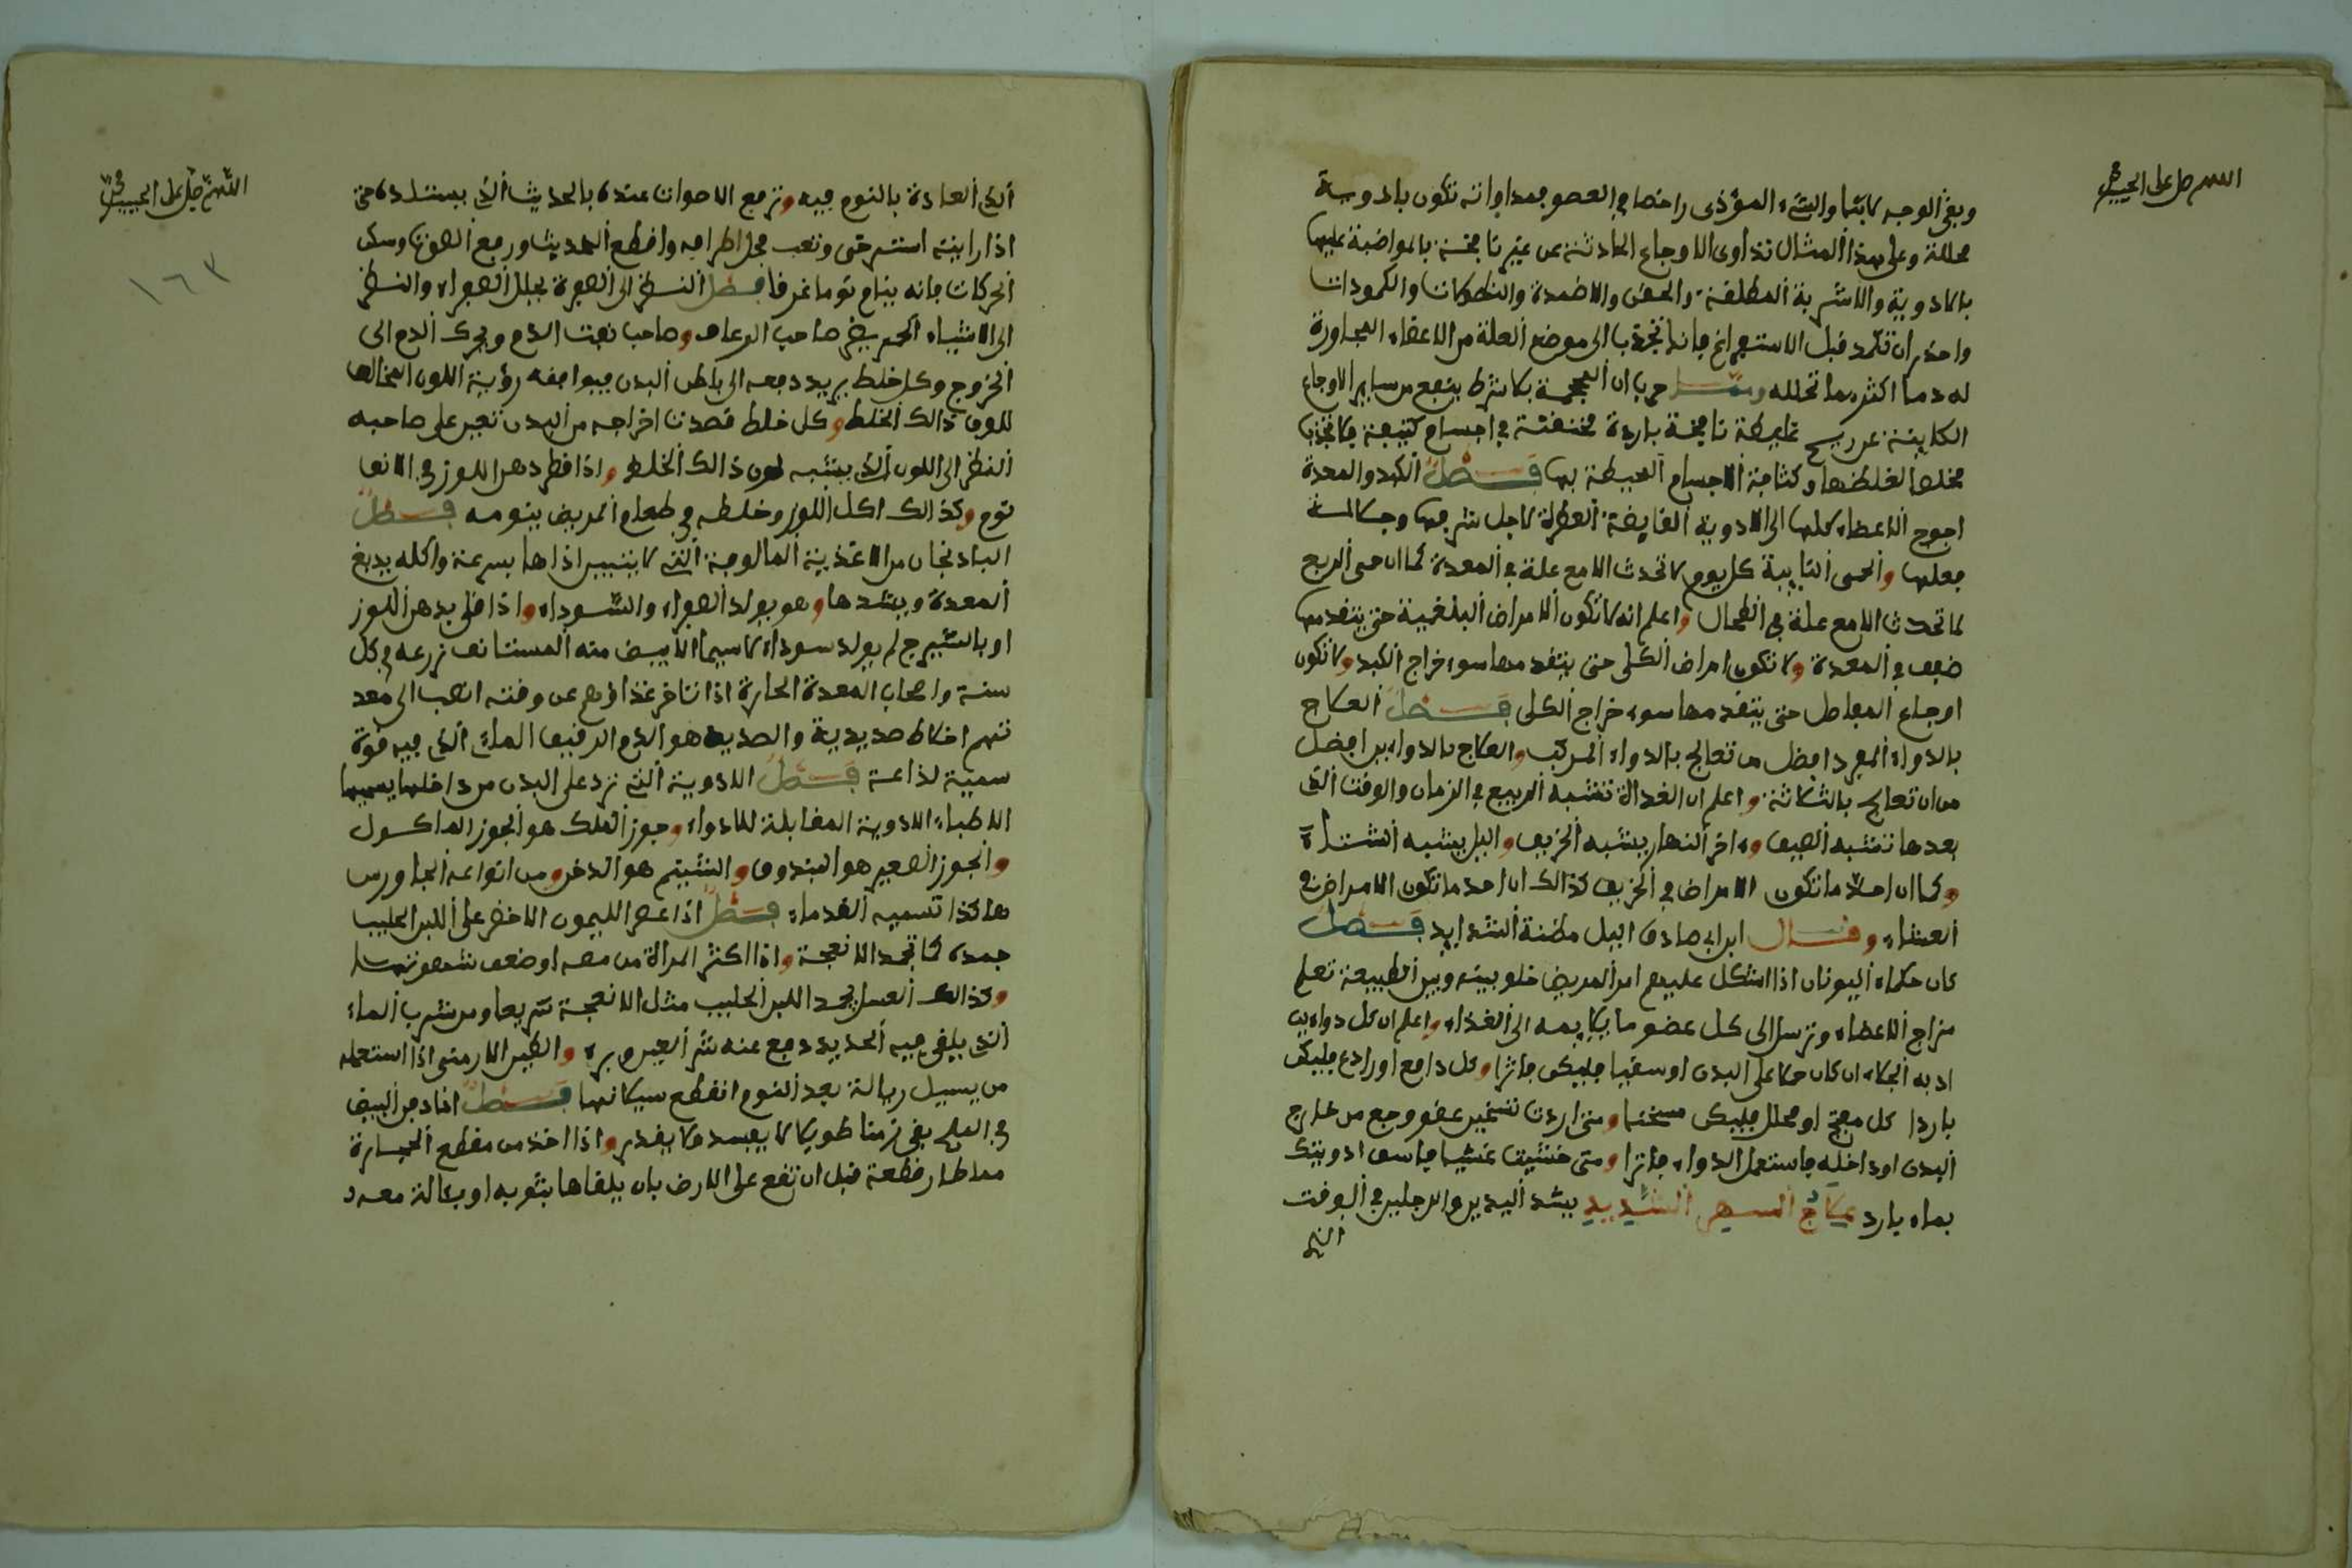 اللهم صل على الحبيب
وبقى الوجه لابثا والشيء المؤذى راخصا في العضو فمداواته تكون بادوية
محللة وعلى هذا المثال تداوى الاوجاع الحادثة عن غير نافخة بالمواضبة عليها
بالادوية والاشربة المطلقة والحقن والاضمدة والنطولات والكمودات
واحذر ان تكمد قبل الاستفراغ فانها تجذب الى موضع العلة من الاعضاء المجاورة
له دما اكثر مما تحلله ومما جرب ان المحجمة بلا شرط ينفع من ساير الاوجاع
الكاينة عن ريح غليظة نافخة باردة مختنقة في اجسام كثيفة فلا تجذب
مخلصا لغلظها وكثافة الاجسام المحيطة بها فصل الكبد والمعدة
احوج الاعضاء كلها الى الادوية القابضة العطرة لاجل شرفها وجلالة
فعلها والحمى النايبة كل يوم لا تحدث الا مع علة في المعدة كما ان حمى الربع
لا تحدث الا مع علة في الطحال واعلم انه لا تكون الامراض البلغمية حتى يتقدمها
ضعف في المعدة ولا تكون امراض الكلى حتى يتقدمها سوء مزاج الكبد ولا تكون
اوجاع المفاصل حتى يتقدمها سوء مزاج الكلى فصل العلاج
بالدواء المفرد افضل من تعالج بالدواء المركب والعلاج بالدواءين افضل
من ان تعالج بالثلاثة واعلم ان الغداة تشبه الربيع في الزمان والوقت الذي
بعدها تشبه الصيف واخر النهار يشبه الخريف والليل يشبه الشتاء
وكما ان احد ما تكون الامراض في الخريف كذالك ان احد ما تكون الامراض في
العشاء وقال ابن ابي صادق الليل مظنة الشدايد فصل
كان حكماء اليونان اذا اشكل عليهم امر المريض خلو بينه وبين الطبيعة تعلم
مزاج الاعضاء وترسل الى كل عضو ما يلايمه الى الغذاء واعلم ان كل دواء يب
ادبه الجلاء ان كان حكا على البدن او سقيا فليكن فاترا وكل دافع او رادع فليكن
باردا كل مفتح او محلل فليكن مسخنا ومتى اردت تسخين عضو وجع من خارج
البدن او داخله فاستعمل الدواء فاترا ومتى خشيت غشيا فاسق ادويتك
بماء بارد علاج السهر الشديد يشد اليدين والرجلين في الوقت
الذي
اللهم صل على الحبيب
١٦٣
الذي العادة بالنوم فيه وترفع الاصوات عنده بالحديث الذي يستلذه حتى
اذا رايته استرخى وتعب فحل اطرافه واقطع الحديث ورفع الصوت وسكن
الحركات فانه ينام نوما غرقا فصل النظر الى الصفرة يجلل الصفراء والنظر
الى الاشياء الحمر يضر صاحب الرعاف وصاحب نفث الدم ويحرك الدم الى
الخروج وكل خلط يريد دفعه الى باطن البدن فيوافقه رؤية اللون المخالف
للون ذالك الخلط وكل خلط قصدت اخراجه من البدن تعين على صاحبه
النظر الى اللون الذي يشبه لون ذالك الخلط واذا قطر دهن اللوز في الانف
نوم وكذالك اكل اللوز وخلطه في طعام المريض ينومه فصل
الباذنجان من الاغذية المالوفة التي لا يتبين اذاها بسرعة واكله يدبغ
المعدة ويشدها وهو يولد الصفراء والسوداء واذا قلي بدهن اللوز
او بالشيرج لم يولد سوداء لا سيما الابيض منه المستانف زرعه في كل
سنة واصحاب المعدة الحارة اذا تاخر غذاؤهم عن وقته انصب الى معد
تهم اخلاط صديدية والصديد هو الدم الرقيق الماءي الذي فيه قوة
سمية لذاعة فصل الادوية التي ترد على البدن من داخلها يسميها
الاطباء الادوية المقابلة للادواء وجوز الملك هو الجوز الماكول
والجوز الصغير هو البندوق والشيتم هو الدخن ومن انواعه الجاورس
هاكذا تسميه القدماء فصل اذا عصر الليمون الاخضر على اللبن الحليب
جمده كما تجمد الانفحة واذا اكثر المراة من مصه اوضعف شهوتها
وكذالك العسل يجمد اللبن الحليب مثل الانفحة سريعا ومن شرب الماء
الذي يلقى فيه الحديد دفع عنه شر العين وبره والطين الارمني اذا استعمله
من يسيل رياله بعد النوم انقطع سيلانها فصل اذا دفن البيض
في الملح بقي زمنا طويلا لا يفسد ولا يقذر واذا اخذ من مقطع الحجارة
مما طار قطعة قبل ان تقع على الارض بان يلقاها بثوبه او بالة معه و